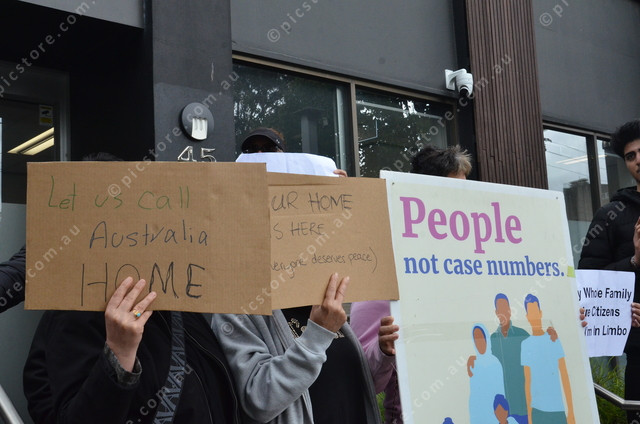 45
Let us call
Australia
HOME
UR HOME
S HERE
deserves peace)
People
not case numbers.
y Whole Family
re Citizens
I'm In Limbo
© picstore.com.au